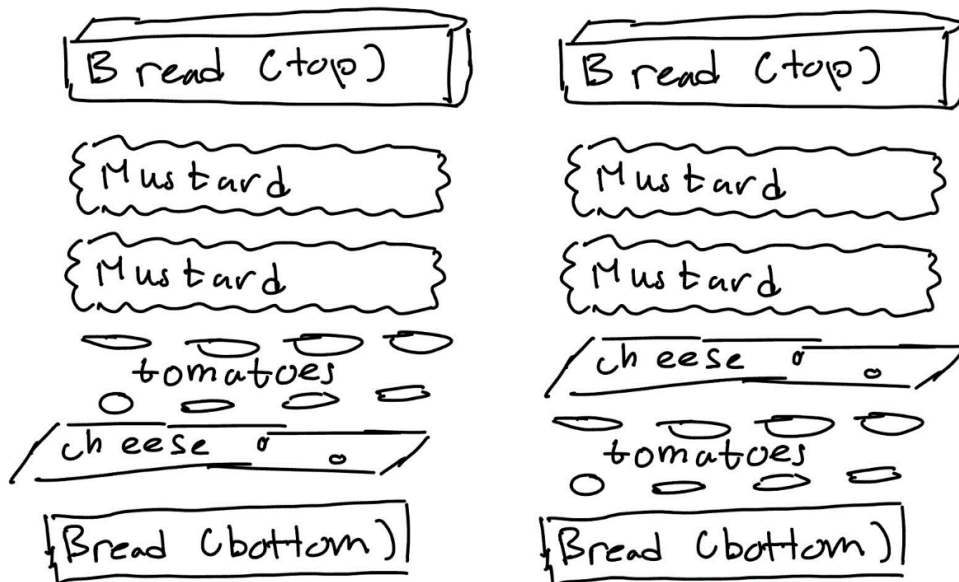 Bread (top)
Mustard
Mustard
tomatoes
cheese
Bread (bottom)
Bread (top)
Mustard
Mustard
cheese
tomatoes
Bread (bottom)